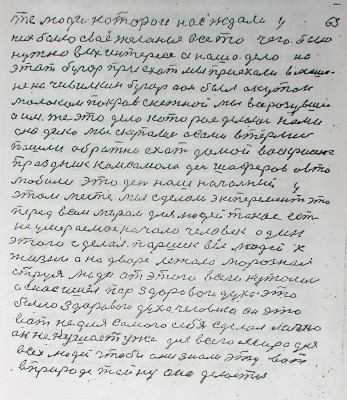 те люди которые нас ждали у 63
них было свое желания все то чего было
нужно в их интересе а наше дело на
этот бугор приехат мы приехали в машине
не на чивилкин бугор а он был окутон
молоком покрав снежной мы все розувшис
а им же это дело которое делали нами
сно дико мы скатали сами втёрлис
пошли обратно ехат домой воскрисние
праздник комсамола ден шоферов авто
мобили это ден наш начальний у
этом месте мы сделали эксперемент это
перед всем миром для людей такое ест
не умераемое начало человек один
этого сделал паршек все людей к
жизни а на дворе лежала морозная
струя люди от этого всего кутолис
а с нас ишёл пар здорового духа это
было здорового духа человика он это
вот не для самого себя сделал лично
он не кушает уже для всего мира для
всех людей чтобы они знали эту вот
в природе тайну она делаетея